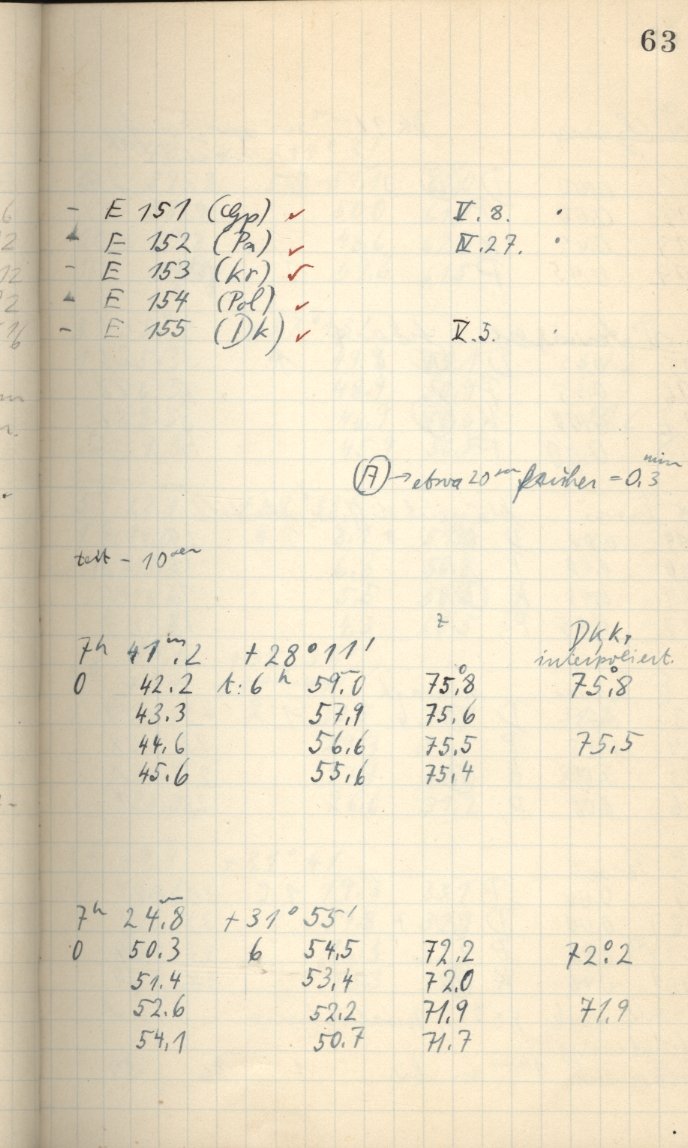 63
- E 151 (Gp) ✓ V. 8. ·
- E 152 (Pa) ✓ IV. 27. ·
- E 153 (Kr) ✓
- E 154 (Pol) ✓
- E 155 (Dk) ✓ V. 5. ·
(A) → etwa 20 sec früher = 0,3 min
- 10 sec
z DK, Kr
7h 41m,2 + 28° 11' interpoliert.
0 42.2 t: 6h 59,0 75°,8 75°,8
43.3 57,9 75,6
44,6 56,6 75,5 75,5
45,6 55,6 75,4
7h 24m,8 + 31° 55'
0 50.3 6 54,5 72,2 72°,2
51.4 53,4 72,0
52.6 52,2 71,9 71,9
54,1 50,7 71,7